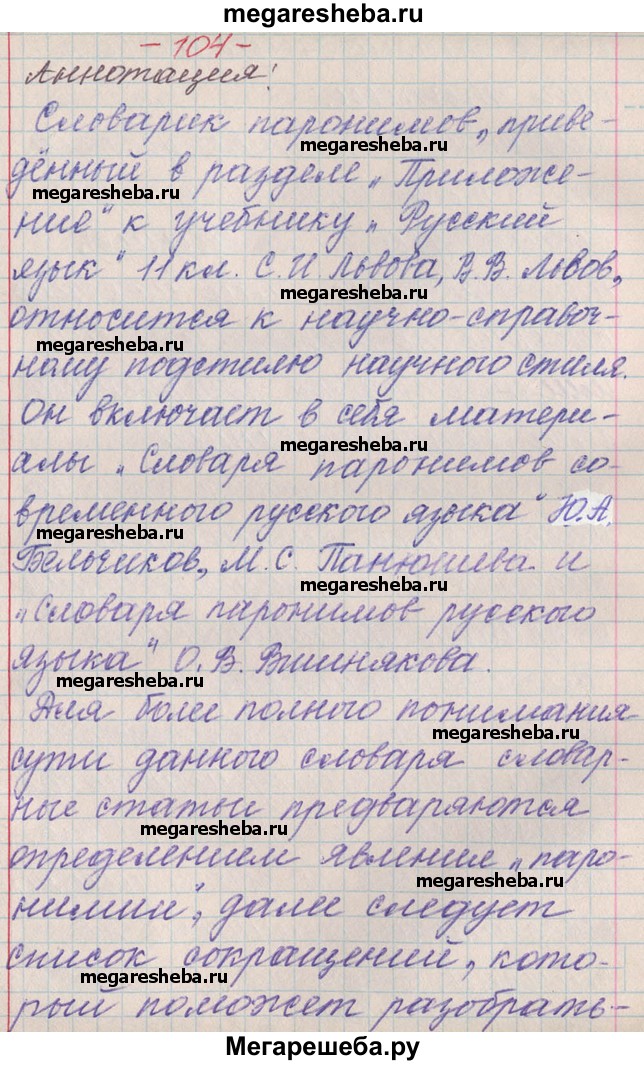 megaresheba.ru
- 104 -
Аннотация!
Словарик паронимов, приве-
megaresheba.ru
дённый в разделе „Приложе-
megaresheba.ru
ние" к учебнику „Русский
язык" 11 кл. С.И Львова, В.В. Львов,
megaresheba.ru
относится к научно-справоч-
megaresheba.ru
ному подстилю научного стиля.
Он включает в себя матери-
megaresheba.ru
алы „Словаря паронимов со-
временного русского языка" Ю.А.
megaresheba.ru
Бельчиков, М.С. Панюшева и
megaresheba.ru
„Словаря паронимов русского
языка" О.В. Вишнякова.
megaresheba.ru
Для более полного понимания
megaresheba.ru
сути данного словаря словар-
ные статьи предваряются
megaresheba.ru
определением явления „паро-
megaresheba.ru
нимии", далее следует
список сокращений, кото-
megaresheba.ru
рый поможет разобрать-
Мегарешеба.ру